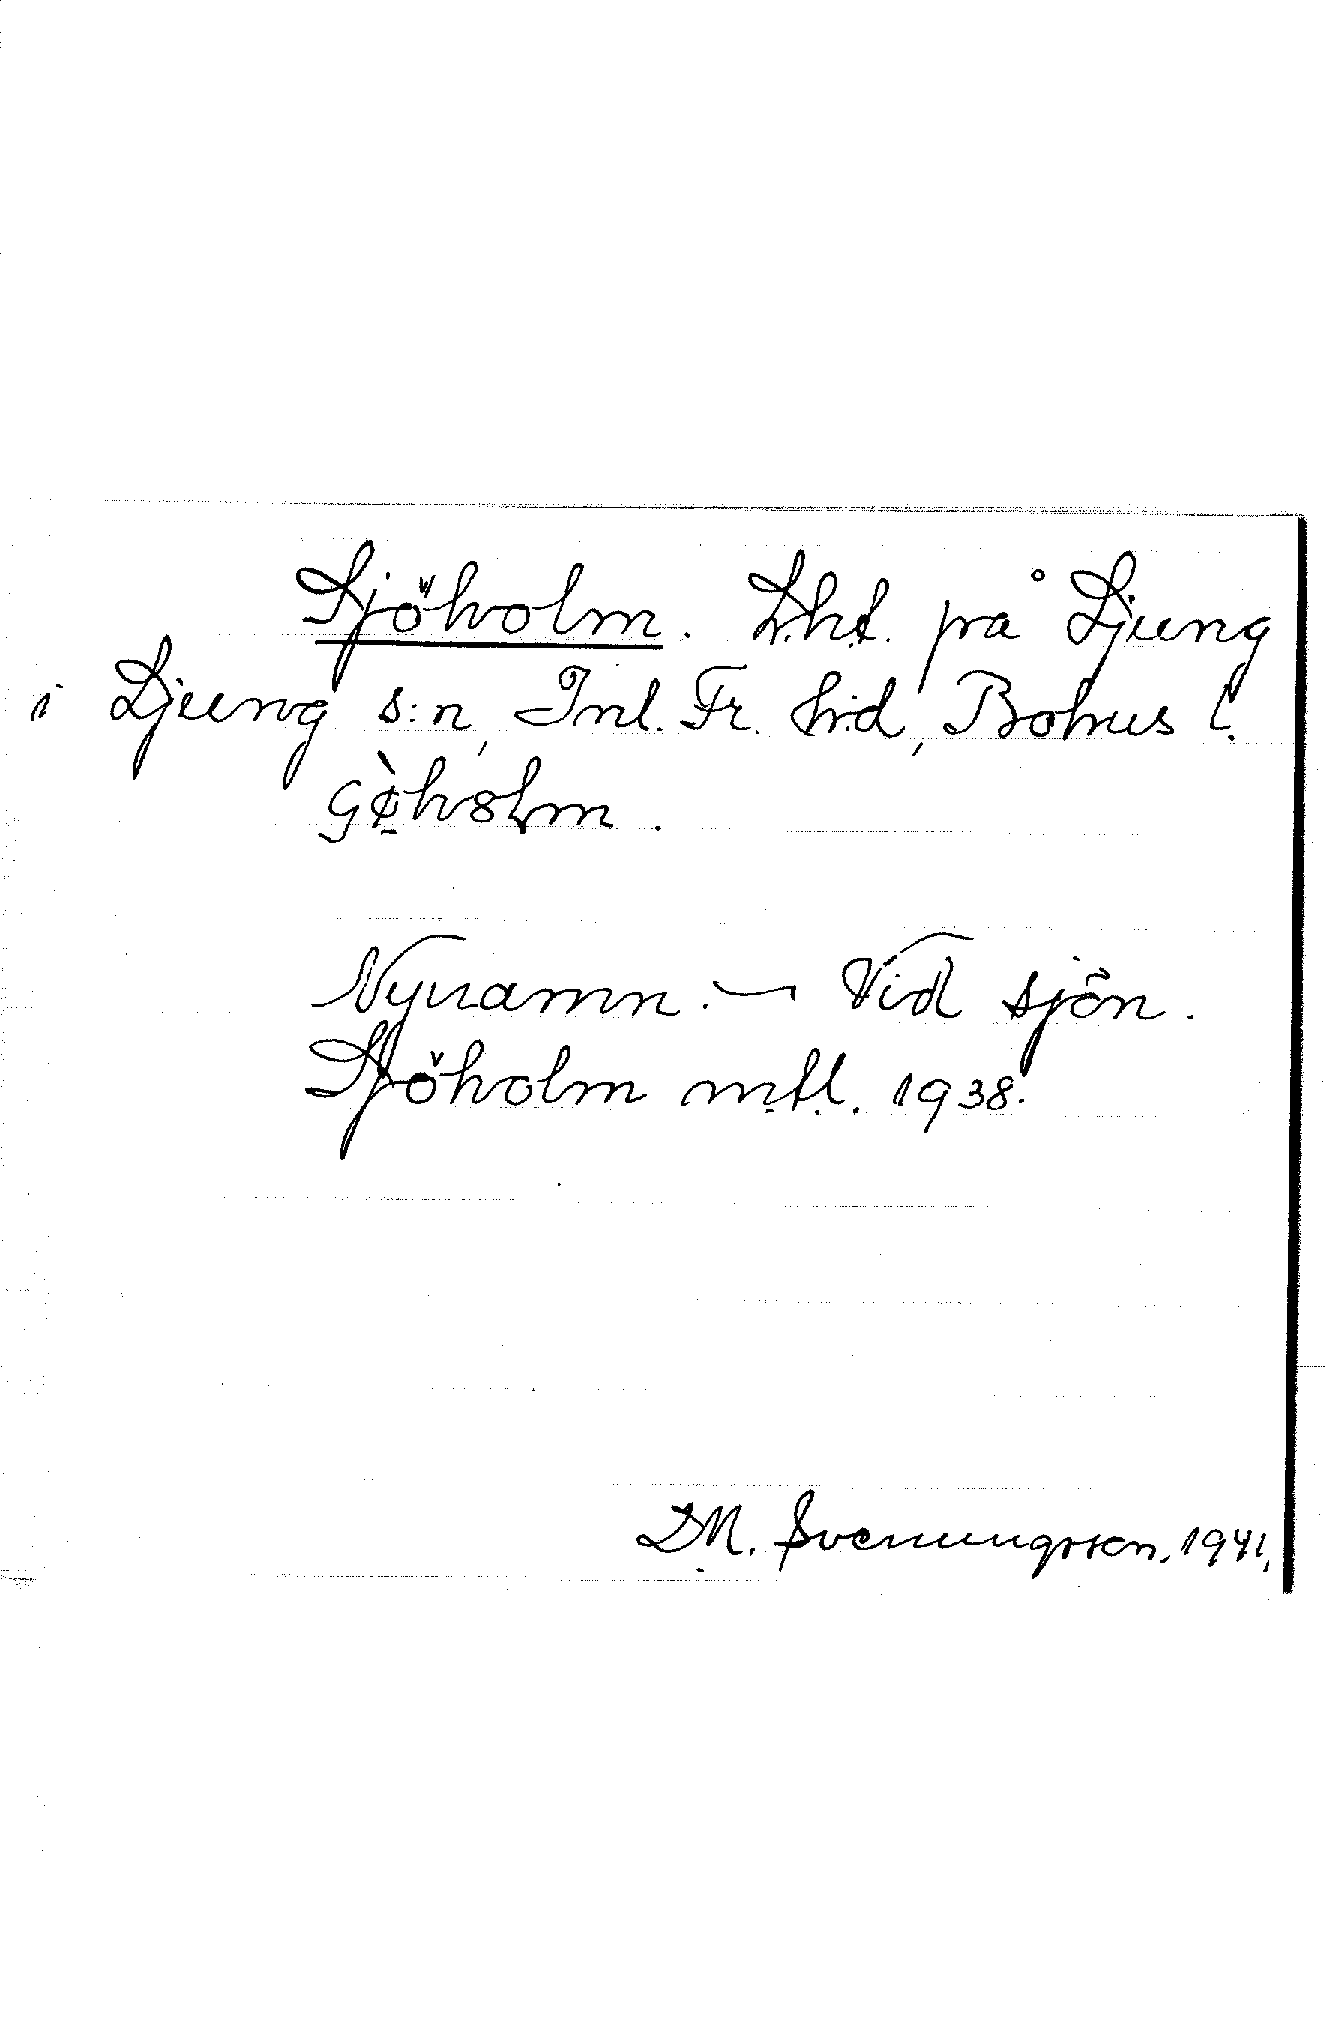 Sjöholm. L.h.t. på Ljung
i Ljung s:n, Inl. Fr. h:d, Bohus l.
Nynamn. — Vid sjön.
Sjöholm mtl. 1938.
D.M. Svenungsson. 1941.